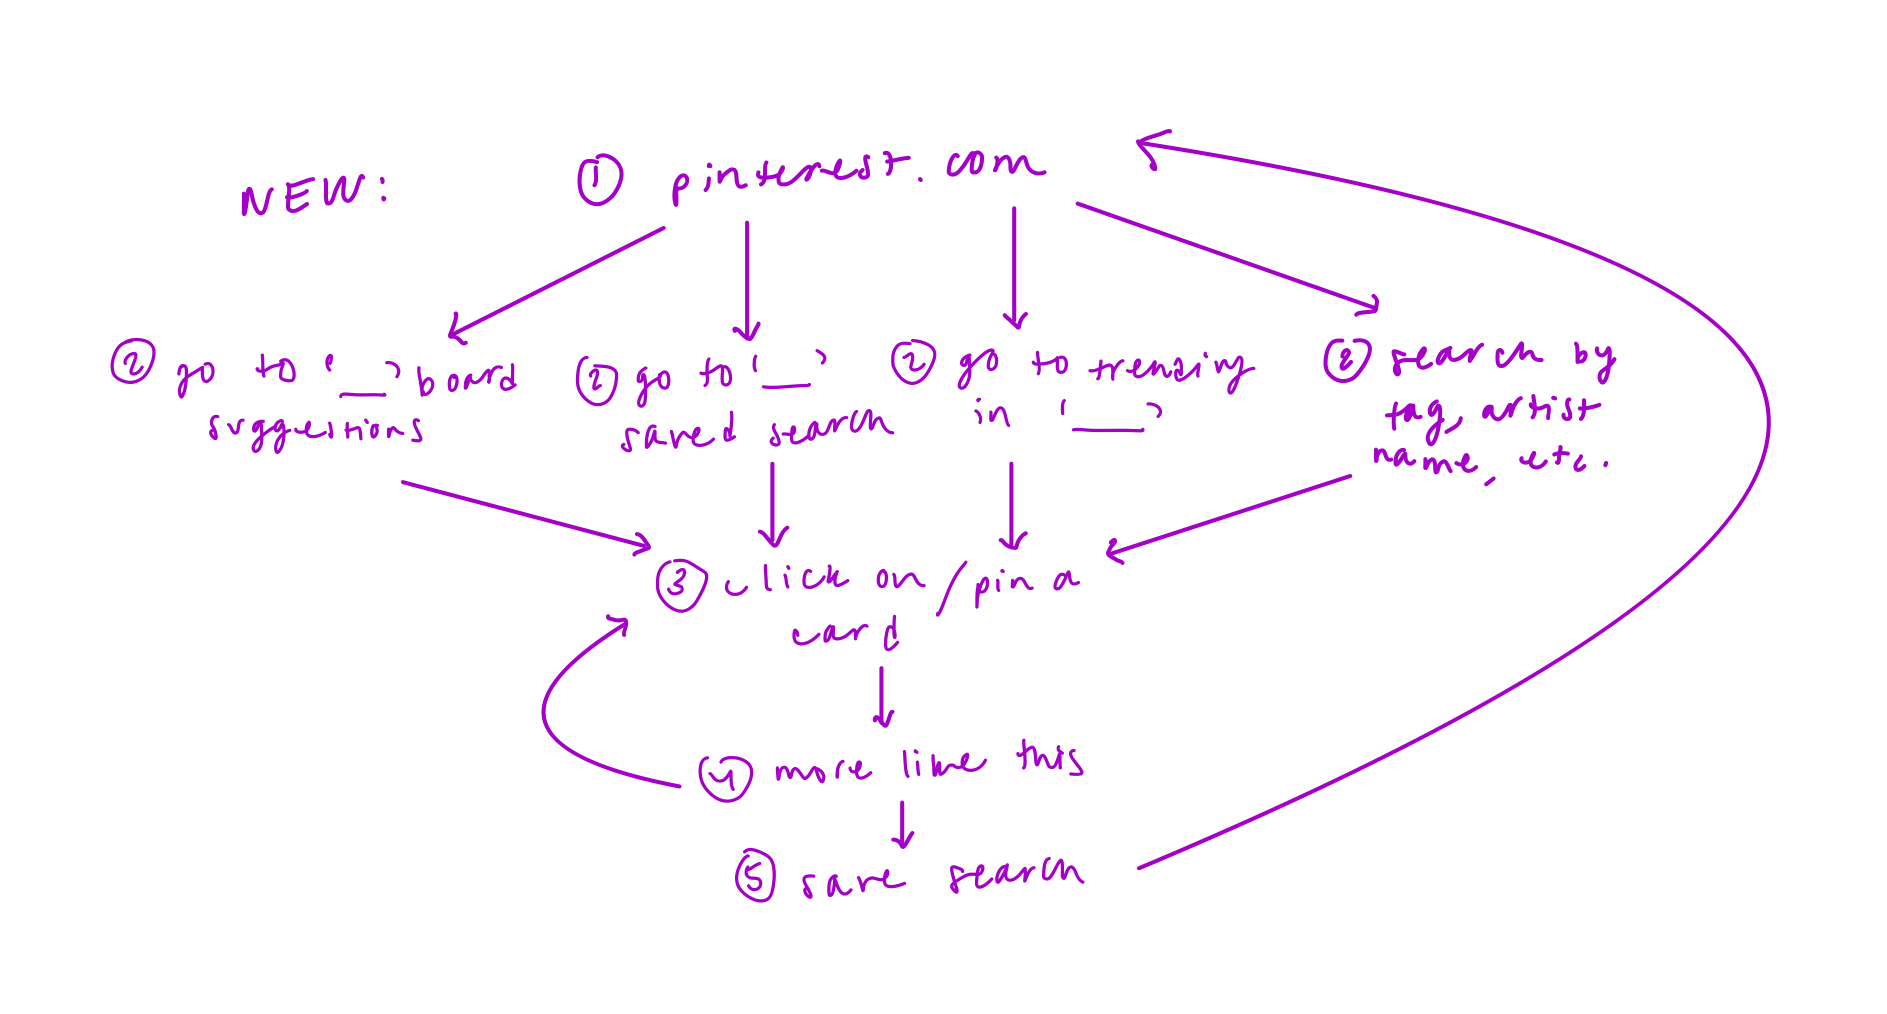 NEW:
① pinterest.com
② go to '___' board
suggestions
② go to '___'
saved search
② go to trending
in '___'
② search by
tag, artist
name, etc.
③ click on/pin a
card
④ more like this
⑤ save search